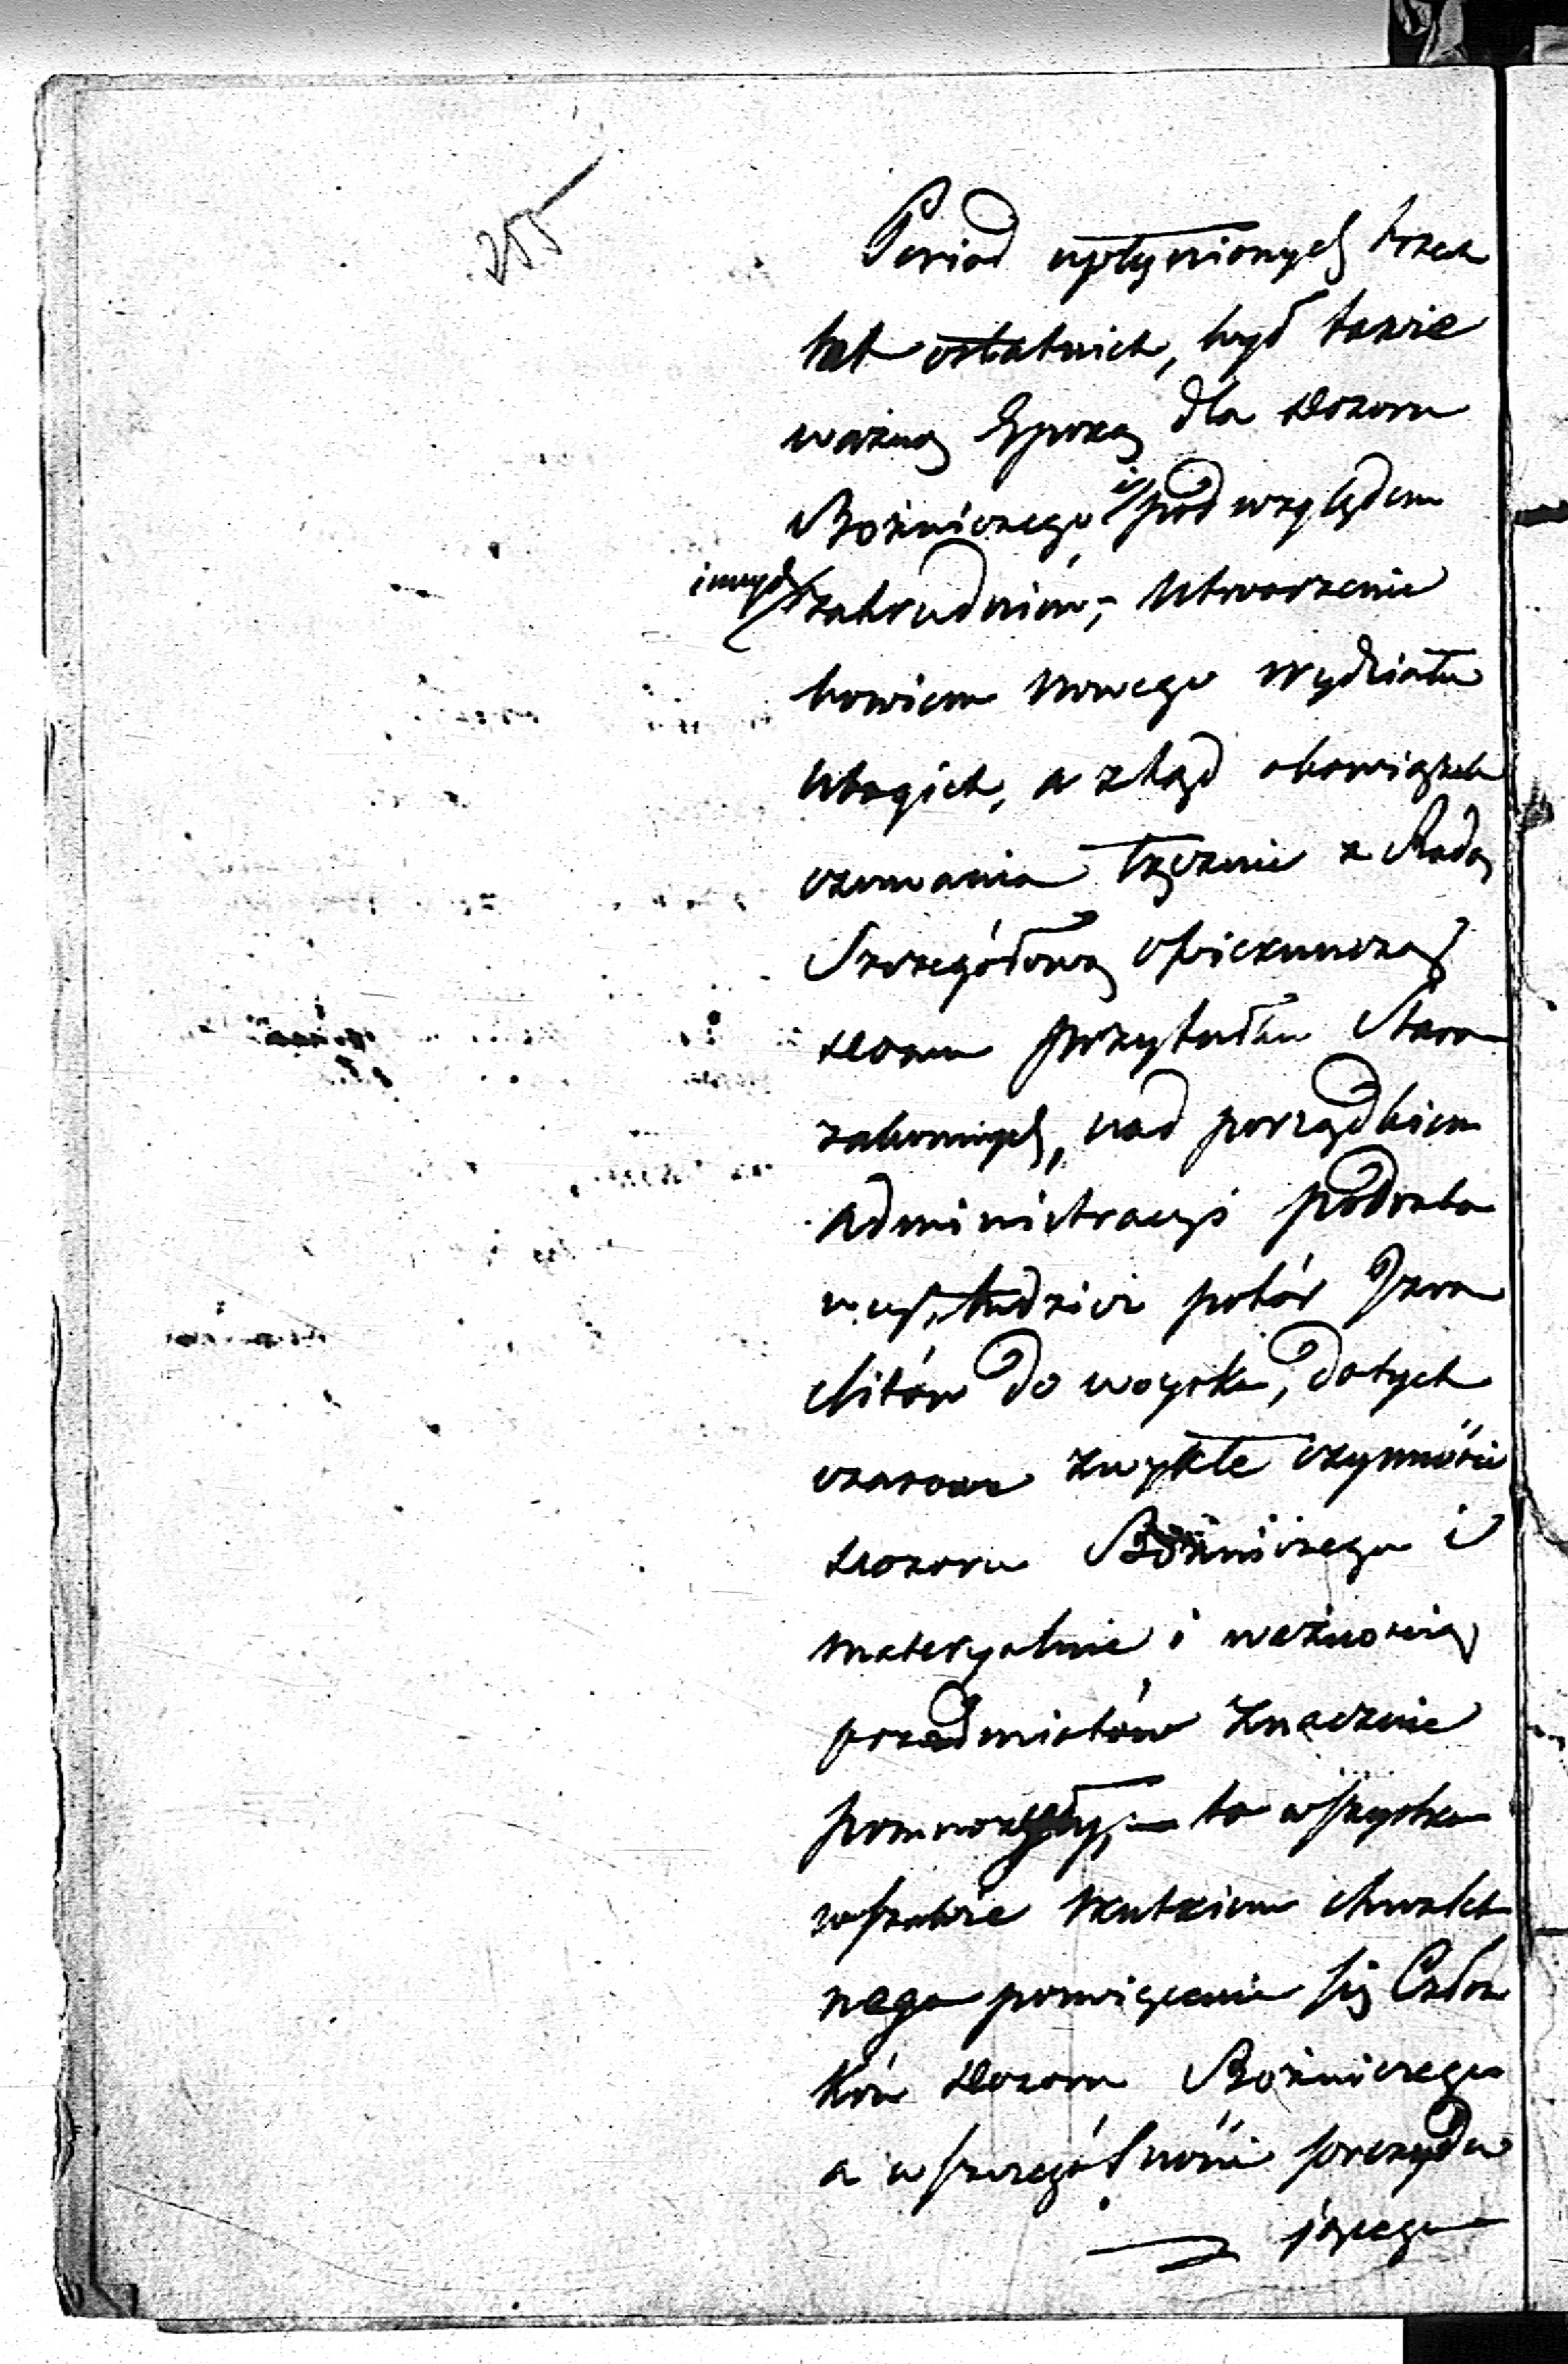 255
Period upłynionych trzech
lat ostatnich, był takie
ważną Epoką dla dozoru
Bożniczego i pod względem
innych zatrudnień; Utworzenie
bowiem nowego Wydziału
Ubogich, a ztąd obowiązek
czuwania łącznie z Radą
Szczegółową opiekunczą
domu przytułku Staro
zakonnych, nad porządkiem
administracyi podatko
wey, tudzież pobór Izra
elitów do woyska, dotych
czasowe zwykłe czynności
dozoru Bożniczego i
materyalnie i ważnością
przedmiotów znacznie
pomnożyły, to wszystko
wszakże skutkiem chwaleb
nego poswięcenia się Człon
ków dozoru Bożniczego
a w szczególności prezydu
jącego